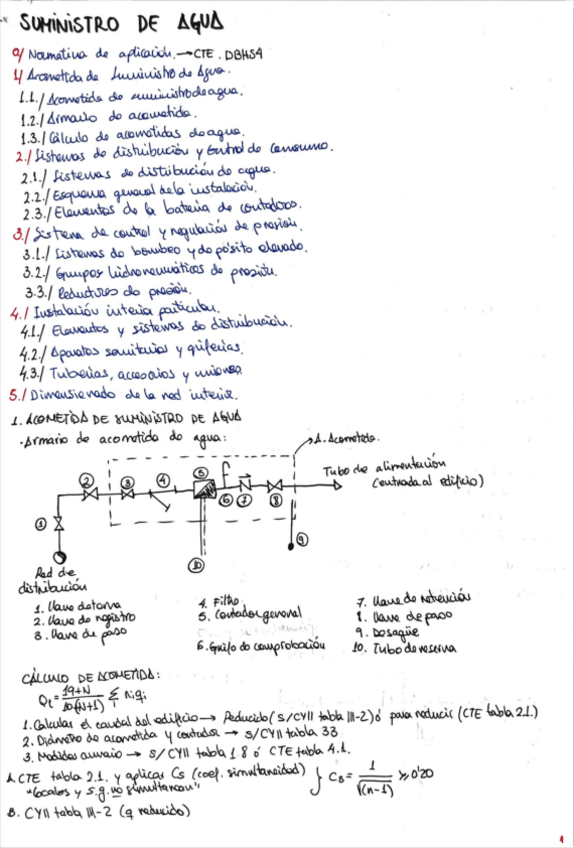 SUMINISTRO DE AGUA
0/ Normativa de aplicación. → CTE. DBHS4
1/ Acometida de Suministro de Agua.
1.1./ Acometida de suministro de agua.
1.2./ Armario de acometida.
1.3./ Cálculo de acometidas de agua.
2./ Sistemas de distribución y control de consumo.
2.1./ Sistemas de distribución de agua.
2.2./ Esquema general de la instalación.
2.3./ Elementos de la batería de contadores.
3./ Sistema de control y regulación de presión.
3.1./ Sistemas de bombeo y depósito elevado.
3.2./ Grupos hidroneumáticos de presión.
3.3./ Reductores de presión.
4./ Instalación interior particular.
4.1./ Elementos y sistemas de distribución.
4.2./ Aparatos sanitarios y griferías.
4.3./ Tuberías, accesorios y uniones.
5./ Dimensionado de la red interior.
1. ACOMETIDA DE SUMINISTRO DE AGUA
· Armario de acometida de agua:
A. Acometida.
Tubo de alimentación
(entrada al edificio)
① ② ③ ④ ⑤ ⑥ ⑦ ⑧ ⑨ ⑩
Red de
distribución
1. Llave de toma
2. Llave de registro
3. Llave de paso
4. Filtro
5. Contador general
6. Grifo de comprobación
7. Llave de retención
8. Llave de paso
9. Desagüe
10. Tubo de reserva
CÁLCULO DE ACOMETIDA:
Qt = 19+N / 10(N+1) Σ ni·qi
1. Calcular el caudal del edificio → Reducido (s/CYII tabla III-2) ó para reducir (CTE tabla 2.1.)
2. Diámetro de acometida y contador → s/CYII tabla 33
3. Medidas armario → s/CYII tabla 18 ó CTE tabla 4.1.
A. CTE tabla 2.1. y aplicar Cs (coef. simultaneidad)
"locales y s.g. no simultanean"
Cs = 1 / √(n-1) ≥ 0'20
B. CYII tabla III-2 (q reducido)
1